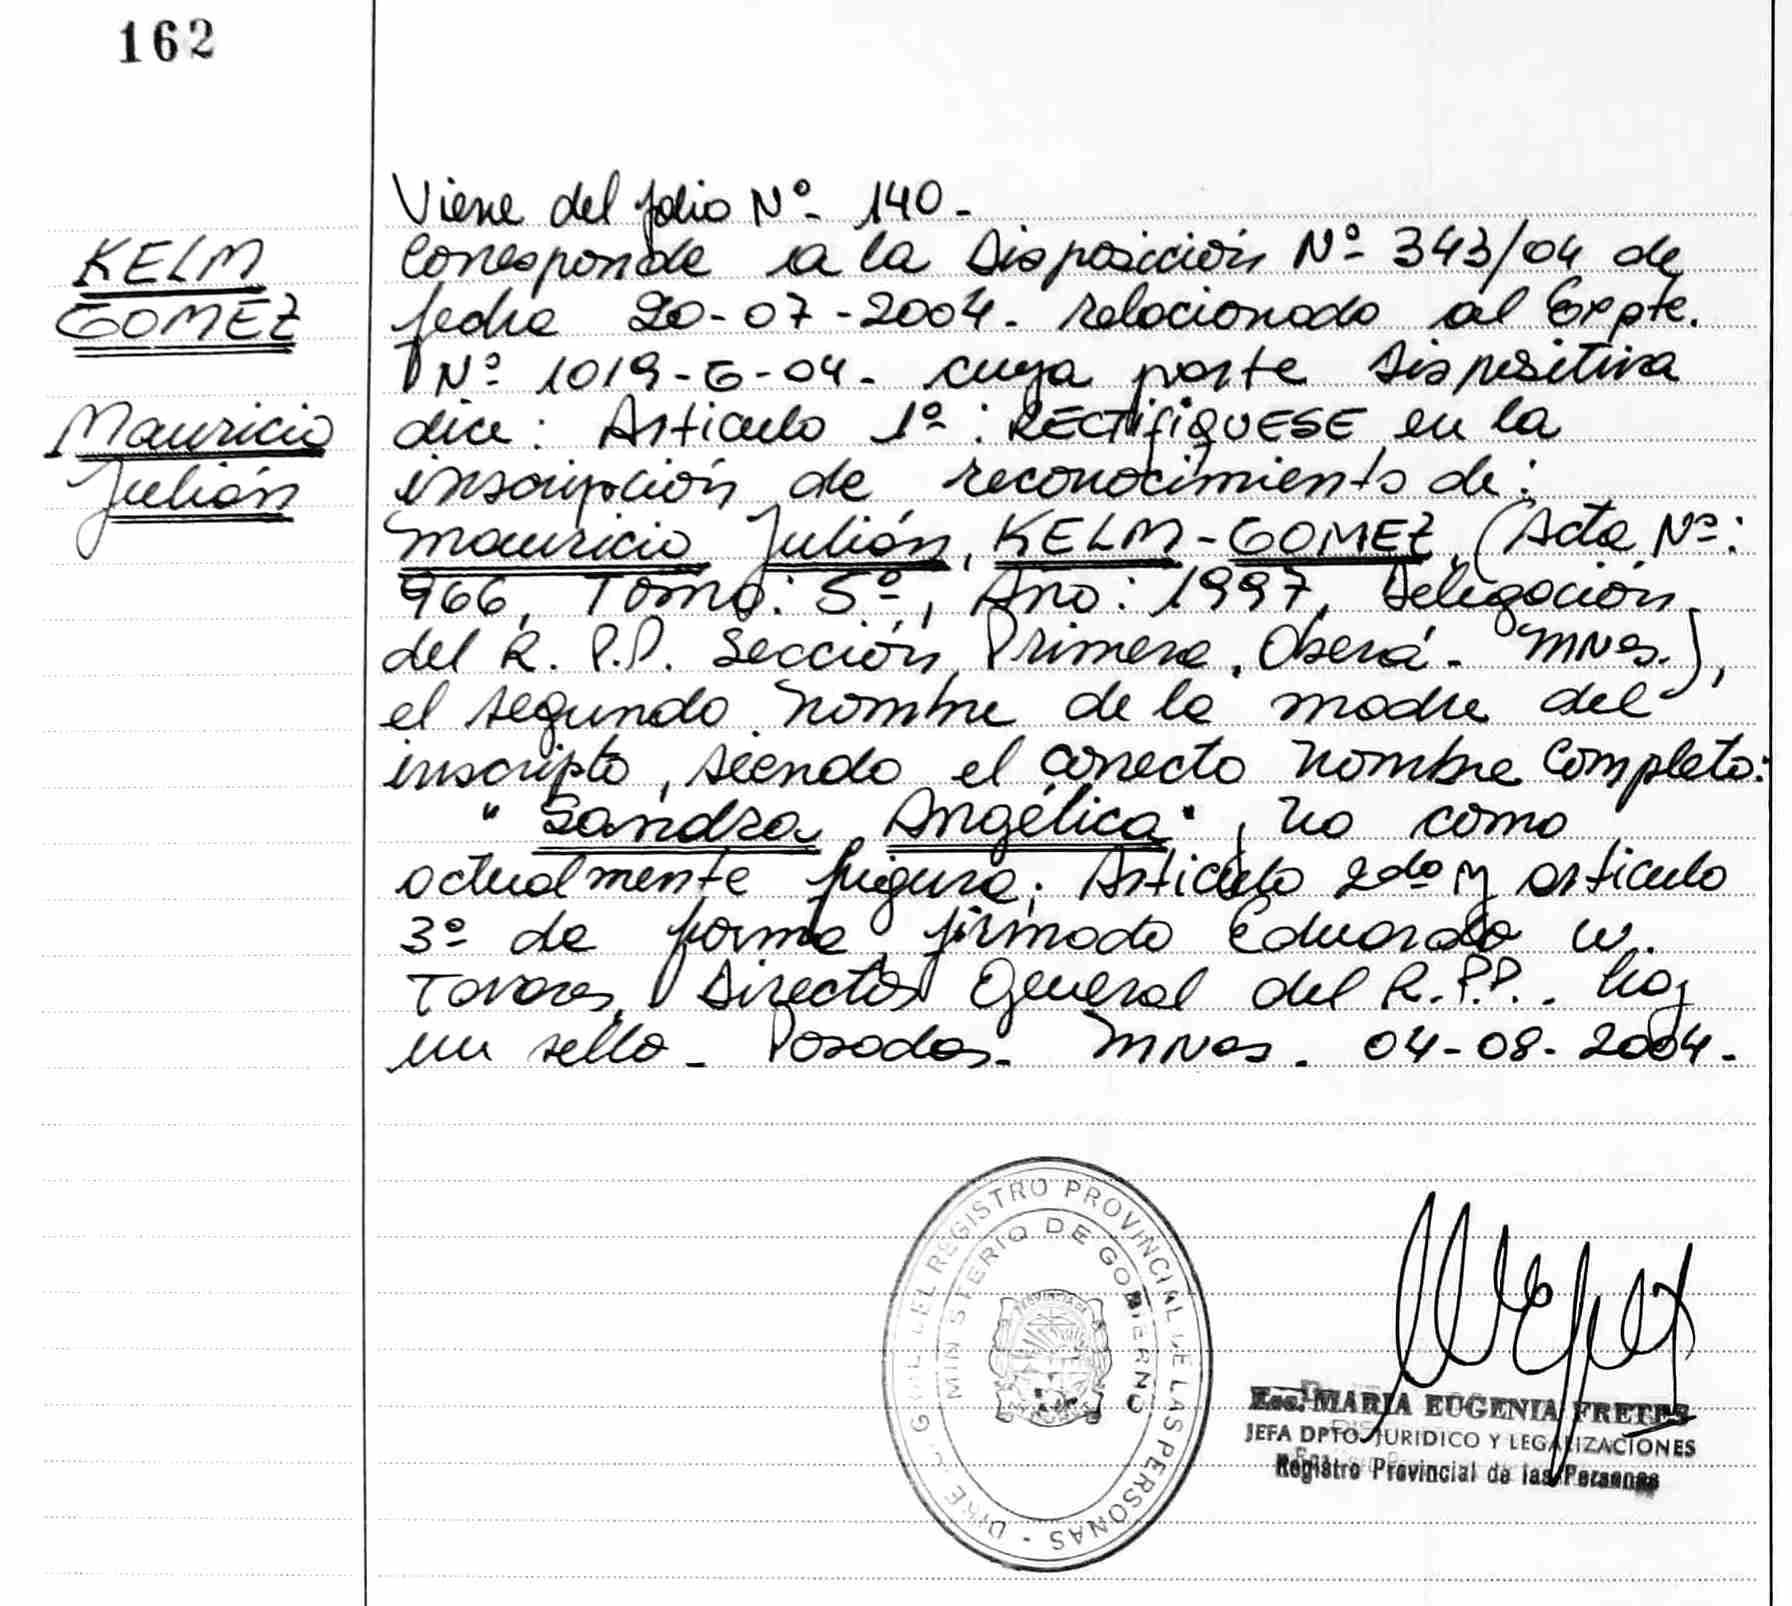 162
KELM
GOMEZ
Mauricio
Julián
Viene del folio Nº 140.-
Corresponde a la Disposición Nº 343/04 de
fecha 20-07-2004. relacionado al Expte.
Nº 1019-G-04. cuya parte dispositiva
dice: Articulo 1º: RECTIFIQUESE en la
inscripción de reconocimiento de:
Mauricio Julián, KELM-GOMEZ, (Acta Nº:
966, Tomo: 5º, Año: 1997, Delegación
del R.P.P. Sección Primera. Oberá. MNes.),
el segundo nombre de la madre del
inscripto, siendo el correcto nombre completo:
"Sandra Angélica", no como
actualmente figura. Articulo 2do y articulo
3º de forma firmado Eduardo W.
Tavares, Director General del R.P.P.. hay
un sello - Posadas. MNes. 04-08-2004.-
REGISTRO PROVINCIAL DE LAS PERSONAS
MINISTERIO DE GOBIERNO
Esc. MARIA EUGENIA FRETES
JEFA DPTO. JURIDICO Y LEGALIZACIONES
Registro Provincial de las Personas